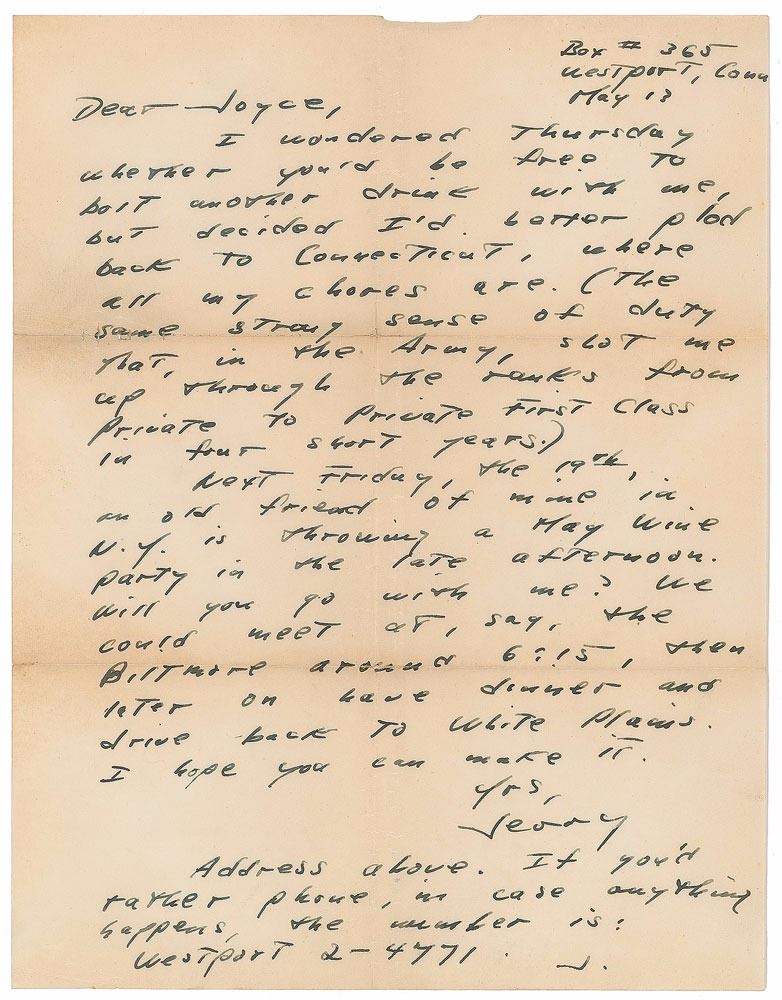 Box # 365
Westport, Conn
May 13
Dear Joyce,
I wondered Thursday
whether you'd be free to
bolt another drink with me,
but decided I'd better plod
back to Connecticut, where
all my chores are. (The
same strong sense of duty
that, in the Army, shot me
up through the ranks from
Private to Private First Class
in four short years.)
Next Friday, the 19th,
an old friend of mine in
N.Y. is throwing a May Wine
party in the late afternoon.
Will you go with me? We
could meet at, say, the
Biltmore around 6:15, then
later on have dinner and
drive back to White Plains.
I hope you can make it.
Yrs,
Jerry
Address above. If you'd
rather phone, in case anything
happens, the number is:
Westport 2-4771.
J.